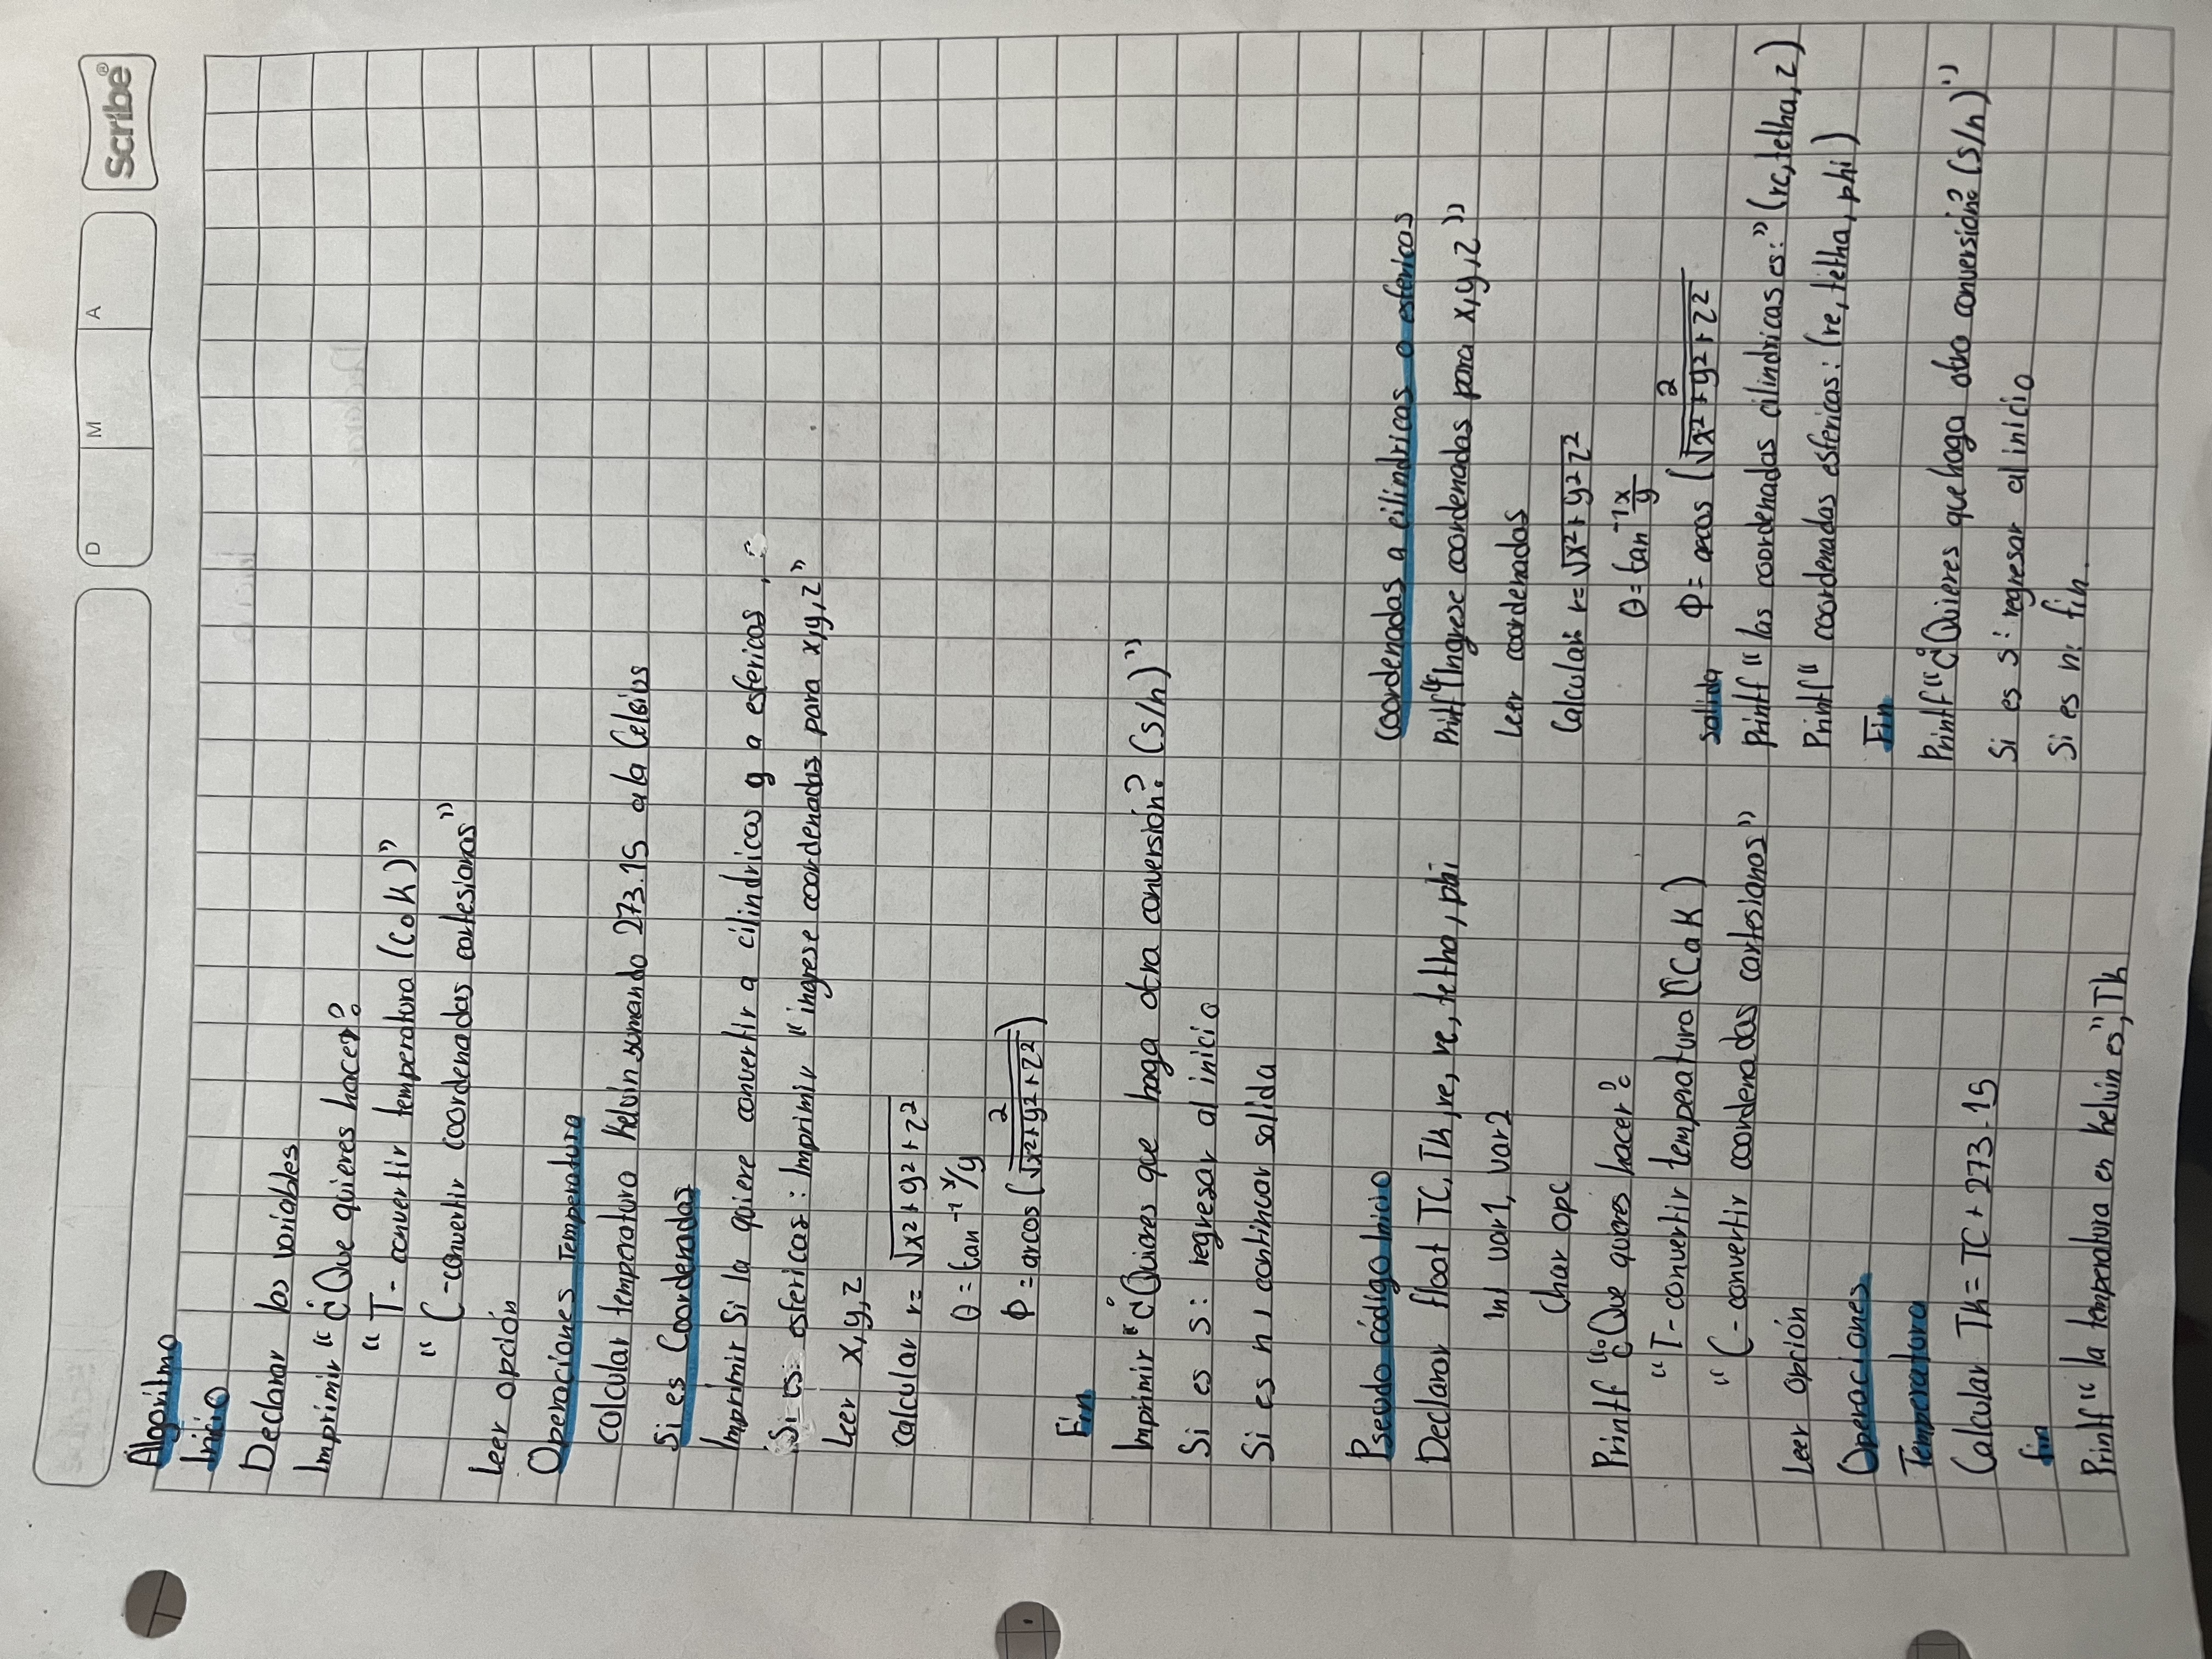 D M A
Scribe®
Algoritmo
Inicio
Declarar las variables
Imprimir "¿Que quieres hacer?
"T- convertir temperatura (C a K)"
"C-convertir coordenadas cartesianas"
Leer opción
Operaciones Temperatura
calcular temperatura Kelvin sumando 273.15 a la Celsius
Si es Coordenadas
Imprimir Si la quiere convertir a cilindricas y a esfericas,
Si es: esfericas: Imprimir "ingrese coordenadas para x,y,z"
Leer x,y,z
calcular r= √x²+y²+z²
θ = tan⁻¹ x/y
Φ = arcos (z/√x²+y²+z²)
Fin
Imprimir "¿Quieres que haga otra conversión? (s/n)"
Si es s: regresar al inicio
Si es n, continuar salida
Pseudo código Inicio
Declarar float TC, Tk, re, rc, tetha, phi
Int var1, var2
Char opc
Printf "¿Que quieres hacer?
"T-convertir temperatura (C a K)
"C-convertir coordenadas cartesianas"
Leer opción
Operaciones
Temperatura
Calcular Tk= TC + 273.15
fin
Printf "la temperatura en kelvin es", Tk
coordenadas a cilindricas o esfericas
Printf "Ingrese coordenadas para x,y,z"
Leer coordenadas
Calcular: r= √x²+y²z²
θ= tan⁻¹ x/y
Φ= arcos (z/√x²+y²+z²
salida
Printf "las coordenadas cilindricas es:" (rc, tetha, z)
Printf" coordenadas esfericas: (re, tetha, phi)
Fin
Printf "¿Quieres que haga otra conversión? (s/n)"
Si es s: regresar al inicio
Si es n: fin.